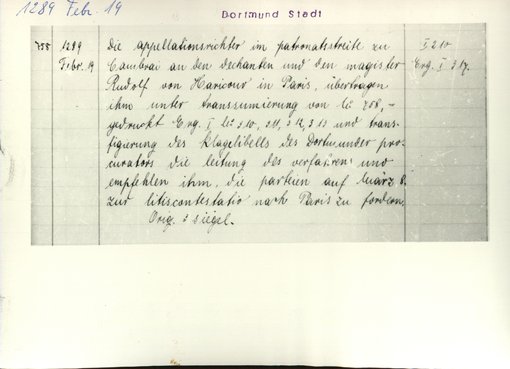 1289 Febr. 19
Dortmund Stadt
755 1289 Die appellationsrichter im patronatsstreite zu I 210
Febr. 19 Cambrai an den dechanten und den magister Erg. I 317.
Rudolf von Haricour in Paris, übertragen
ihm unter transsumierung von № 758,-
gedruckt Erg. I, № 310, 311, 312, 313 und trans-
figurierung des Klagelibells des Dortmunder pro-
curators die leitung des verfahrens und
empfehlen ihm, die parteien auf März 8.
zur litiscontestatio nach Paris zu fordern.
Orig. 2 siegel.